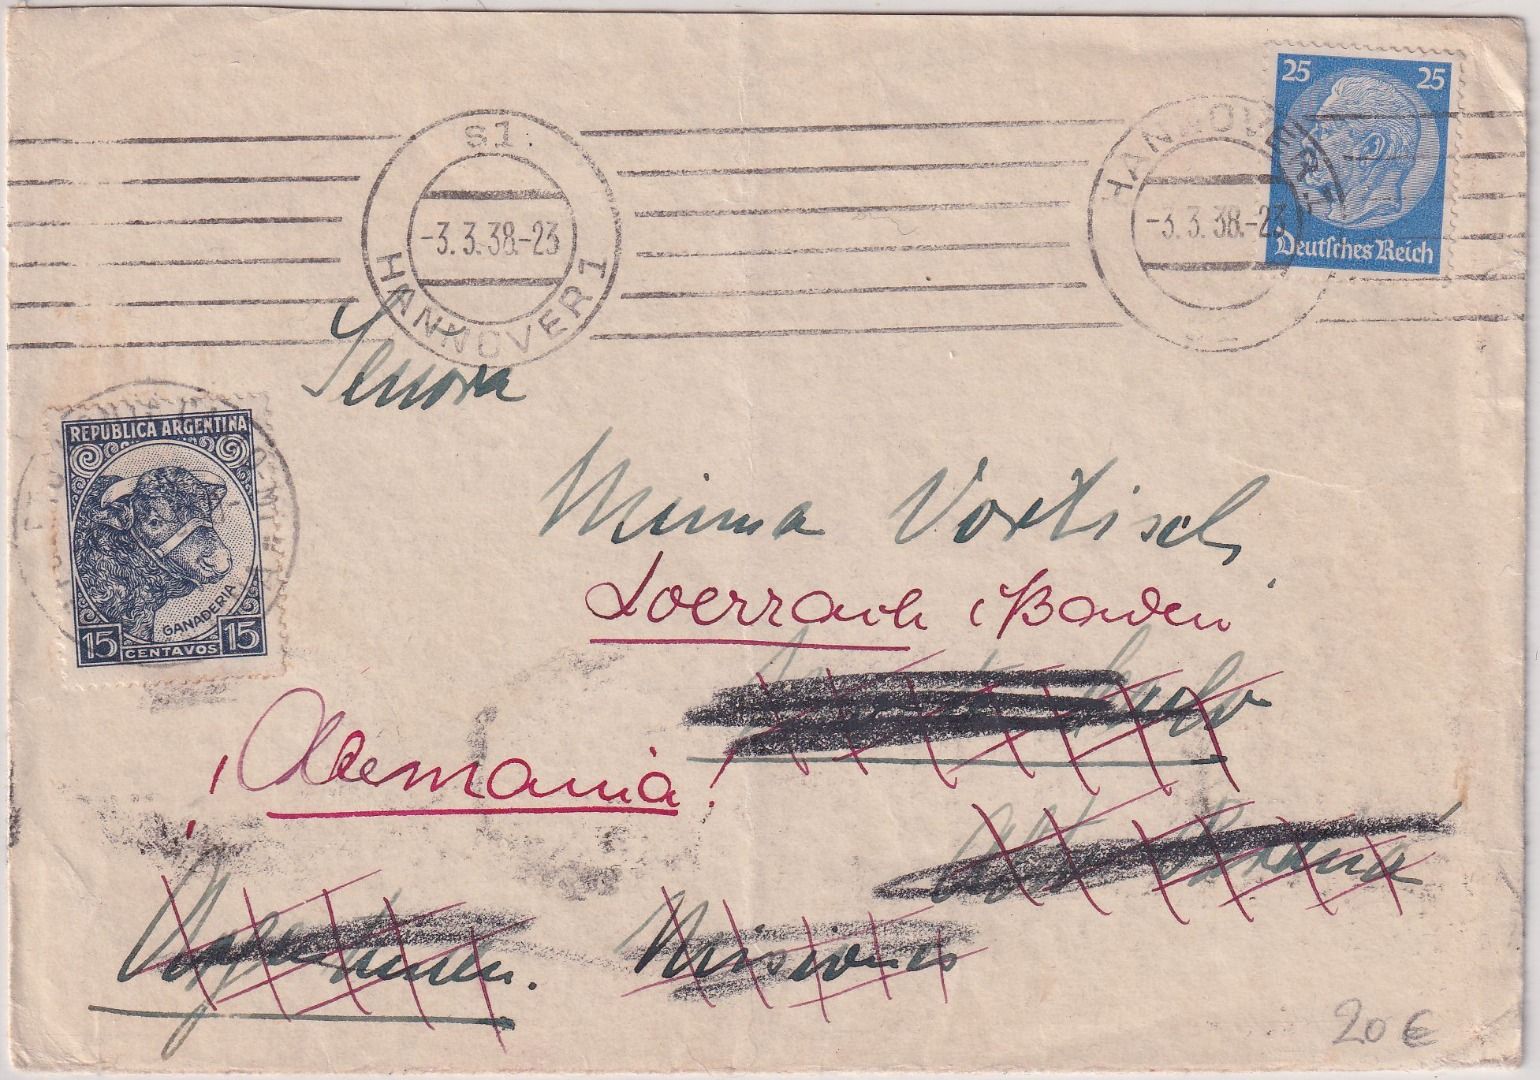 25 25
Deutsches Reich
S1
-3.3.38.-23
HANNOVER 1
HANNOVER 1
-3.3.38.-23
Senora
REPUBLICA ARGENTINA
GANADERIA
15 CENTAVOS 15
Minna Vortisch
Loerrach (Baden
¡Alemania!
Argentinien. Misiones
20 €